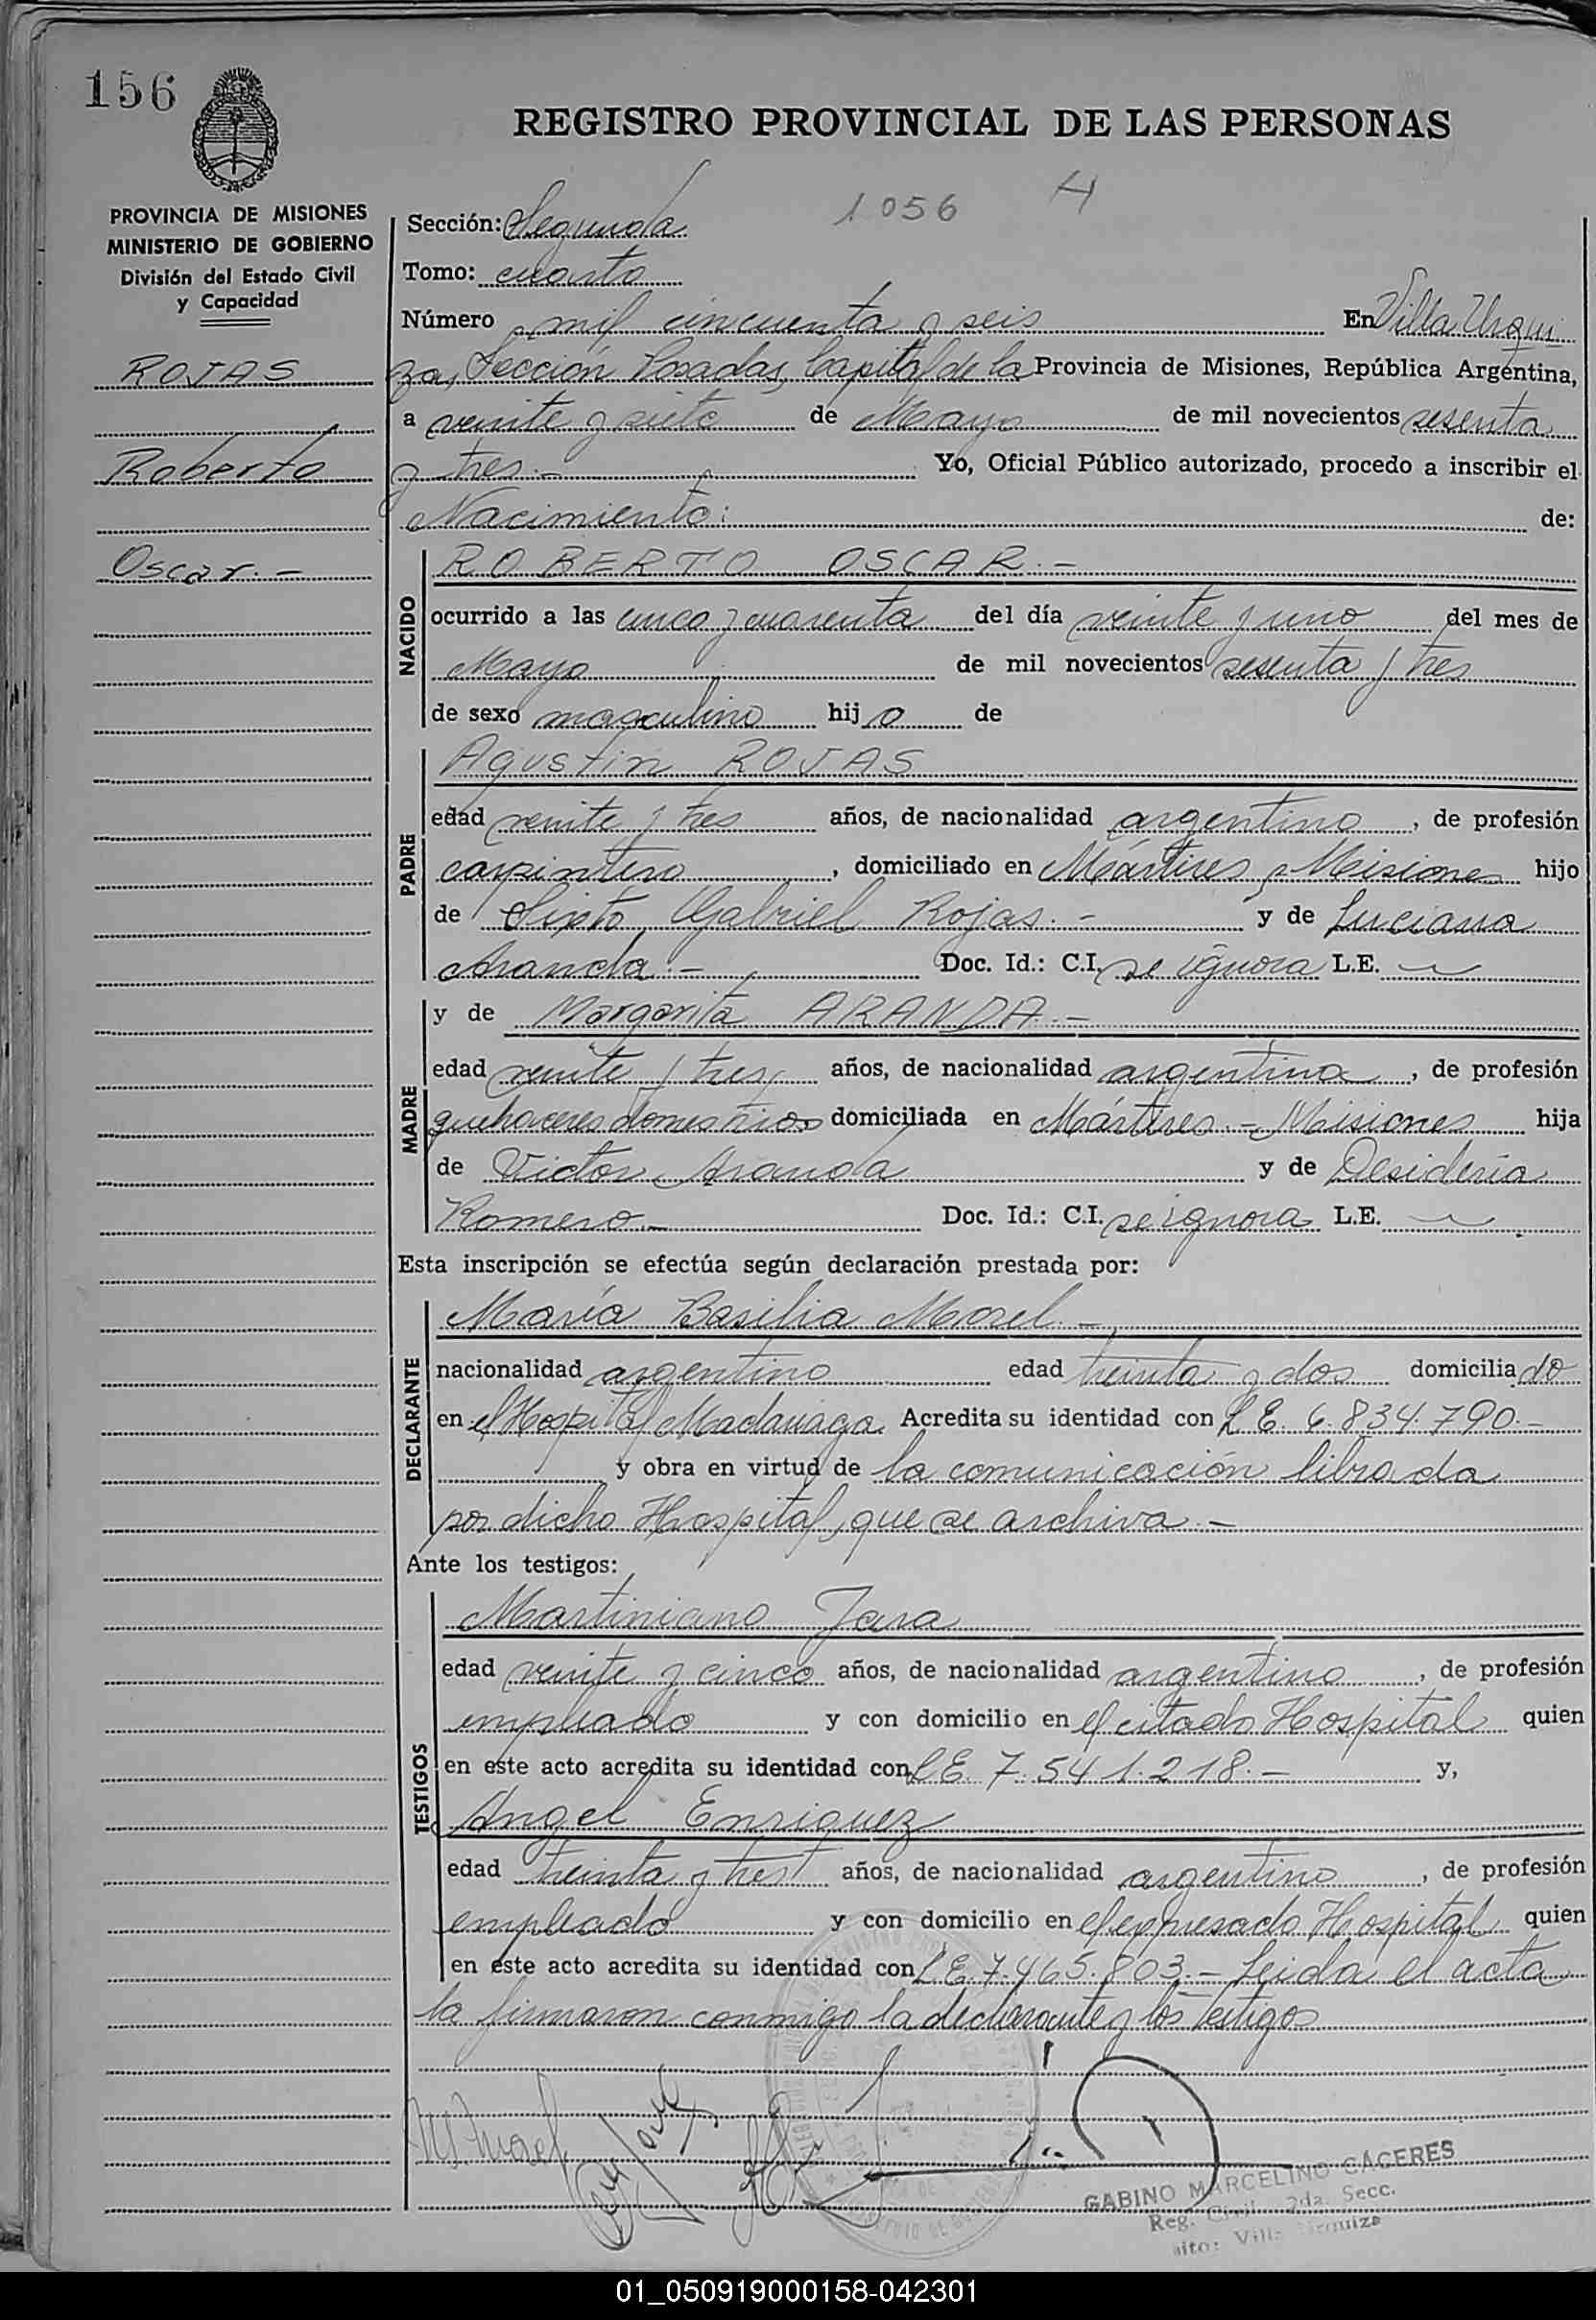 156
REGISTRO PROVINCIAL DE LAS PERSONAS
1056 H
PROVINCIA DE MISIONES
MINISTERIO DE GOBIERNO
División del Estado Civil
y Capacidad
ROJAS
Roberto
Oscar.-
Sección: Segunda
Tomo: cuarto
Número mil cincuenta y seis En Villa Urqui
za, Sección Posadas, Capital de la Provincia de Misiones, República Argentina,
a veinte y siete de Mayo de mil novecientos sesenta
y tres.- Yo, Oficial Público autorizado, procedo a inscribir el
Nacimiento: de:
NACIDO
ROBERTO OSCAR.-
ocurrido a las cinco y cuarenta del día veinte y uno del mes de
Mayo de mil novecientos sesenta y tres
de sexo masculino hijo de
PADRE
Agustin ROJAS
edad veinte y tres años, de nacionalidad argentino, de profesión
carpintero, domiciliado en Mártires, Misiones hijo
de Sixto Gabriel Rojas.- y de Luciana
Aranda.- Doc. Id.: C.I. se ignora L.E.
MADRE
y de Margarita ARANDA.-
edad veinte y tres años, de nacionalidad argentina, de profesión
quehaceres domesticos domiciliada en Mártires - Misiones hija
de Victor Aranda y de Desideria
Romero.- Doc. Id.: C.I. se ignora L.E.
Esta inscripción se efectúa según declaración prestada por:
DECLARANTE
María Basilia Morel.-
nacionalidad argentino edad treinta y dos domiciliado
en el Hospital Madariaga. Acredita su identidad con L.E. 6.834.790.-
y obra en virtud de la comunicación librada
por dicho Hospital, que se archiva.-
Ante los testigos:
TESTIGOS
Martiniano Jara
edad veinte y cinco años, de nacionalidad argentino, de profesión
empleado y con domicilio en el citado Hospital quien
en este acto acredita su identidad con L.E. 7.541.218.- y,
Angel Enriquez
edad treinta y tres años, de nacionalidad argentino, de profesión
empleado y con domicilio en el expresado Hospital quien
en este acto acredita su identidad con L.E. 7.465.803.- Leida el acta
la firmaron conmigo la declarante y los testigos
GABINO MARCELINO CÁCERES
Reg. Civil 2da. Secc.
Villa Urquiza
01_050919000158-042301